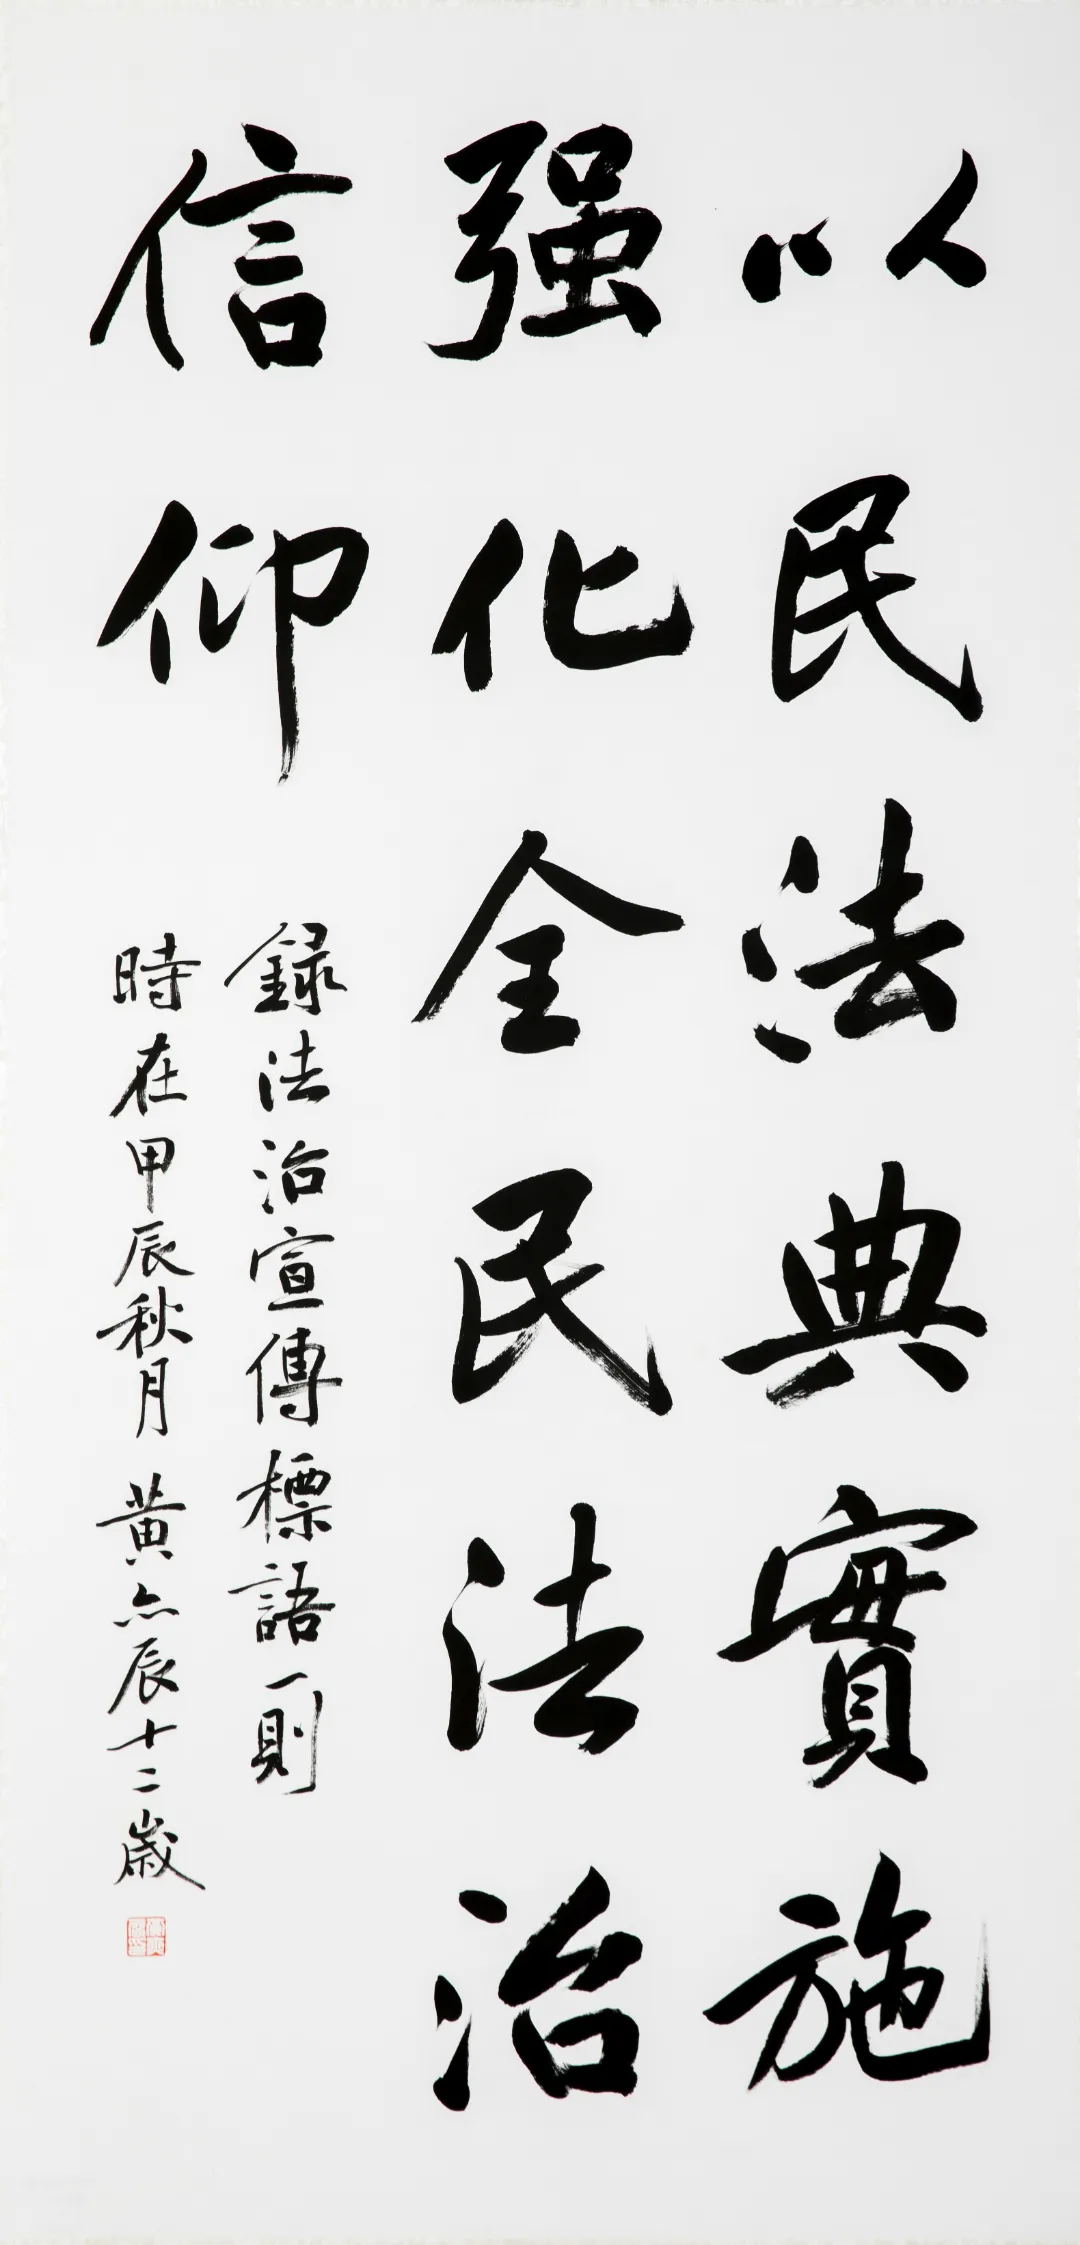 以民法典實施
强化全民法治
信仰
録法治宣傳標語一則
時在甲辰秋月 黄亦辰十二歲